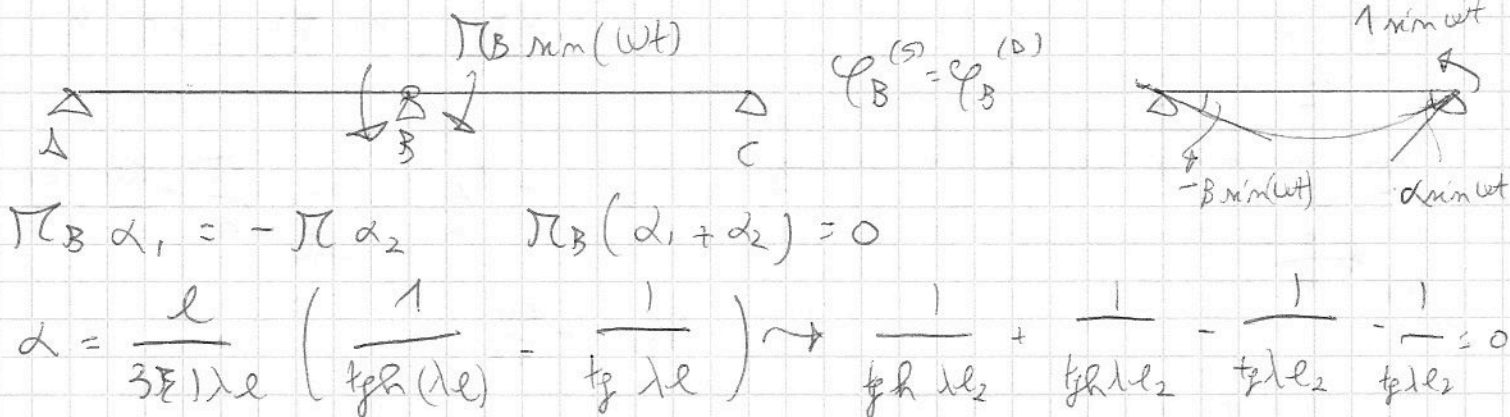 M_B sin(ωt)
φ_B^(S) = φ_B^(D)
1 sin ωt
A B C
-β sin(ωt) α sin ωt
M_B α_1 = - M α_2 M_B (α_1 + α_2) = 0
α = l / (3EJλl) ( 1 / tgh(λl) - 1 / tg λl ) ⇝ 1 / tgh λl_2 + 1 / tgh λl_2 - 1 / tg λl_2 - 1 / tg λl_2 = 0